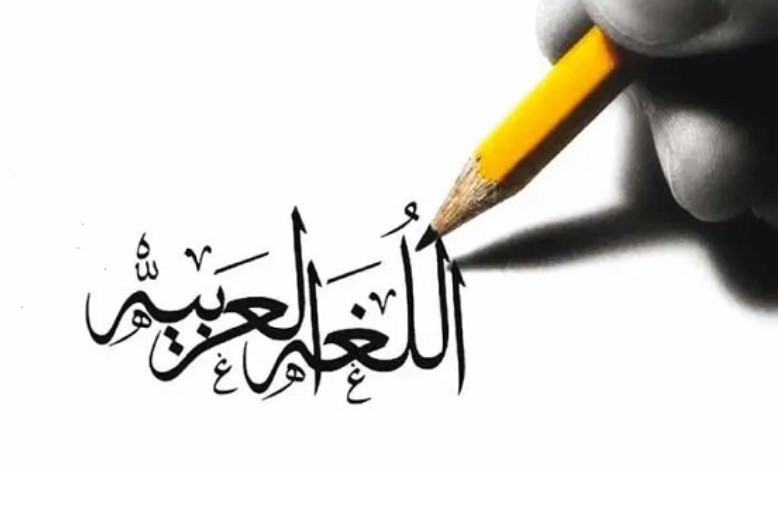 اللُّغة العربية